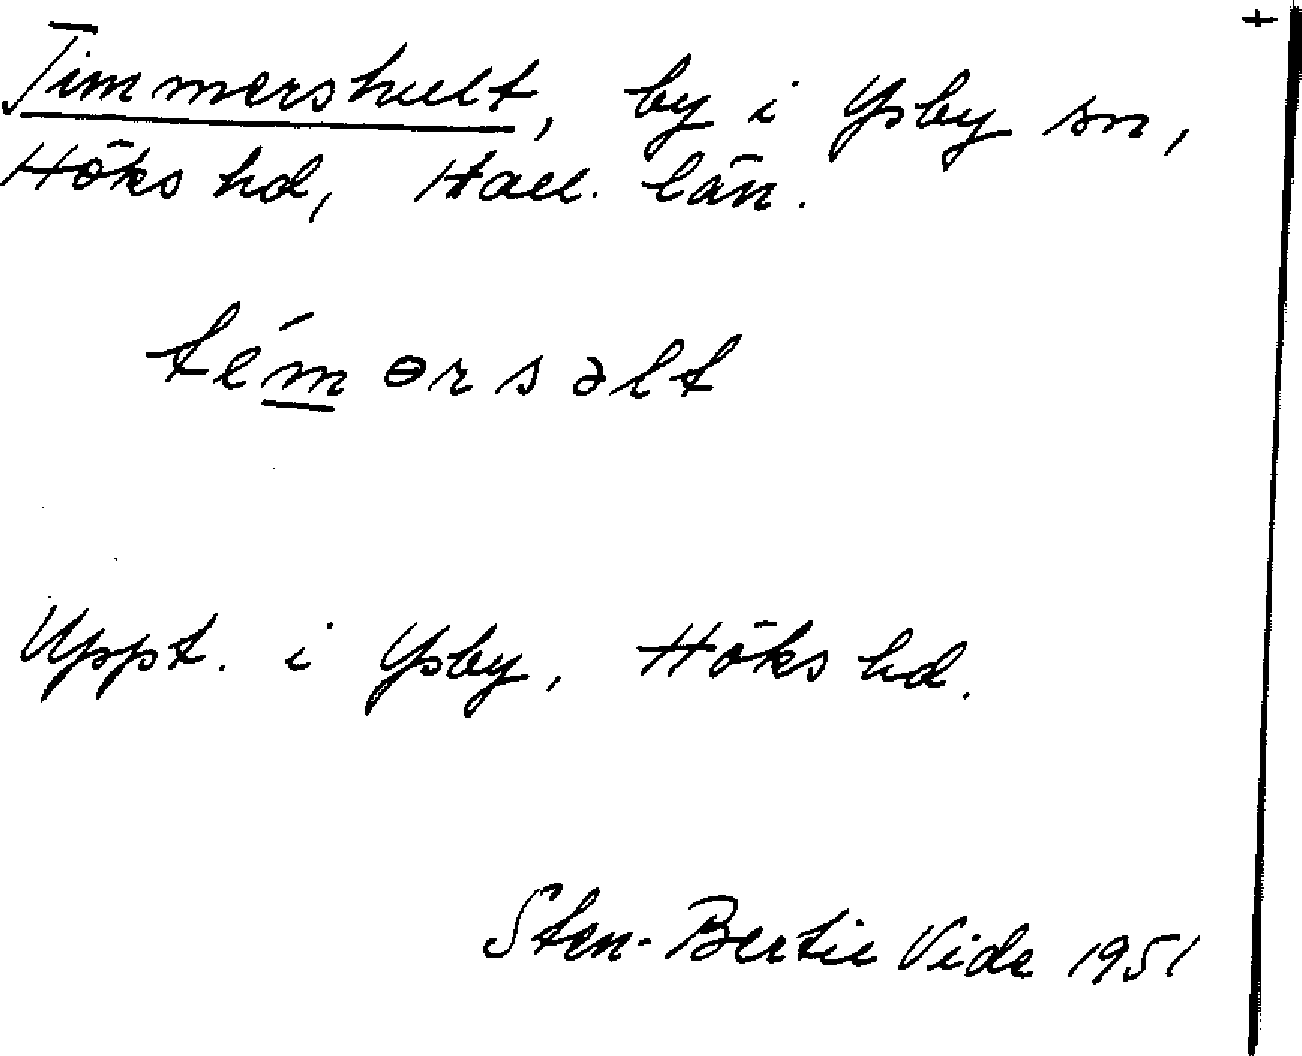 Timmershult, by i Ysby sn,
Höks hd, Hall. län.
témɵrsəlt
Uppt. i Ysby, Höks hd.
Sten-Bertil Vide 1951